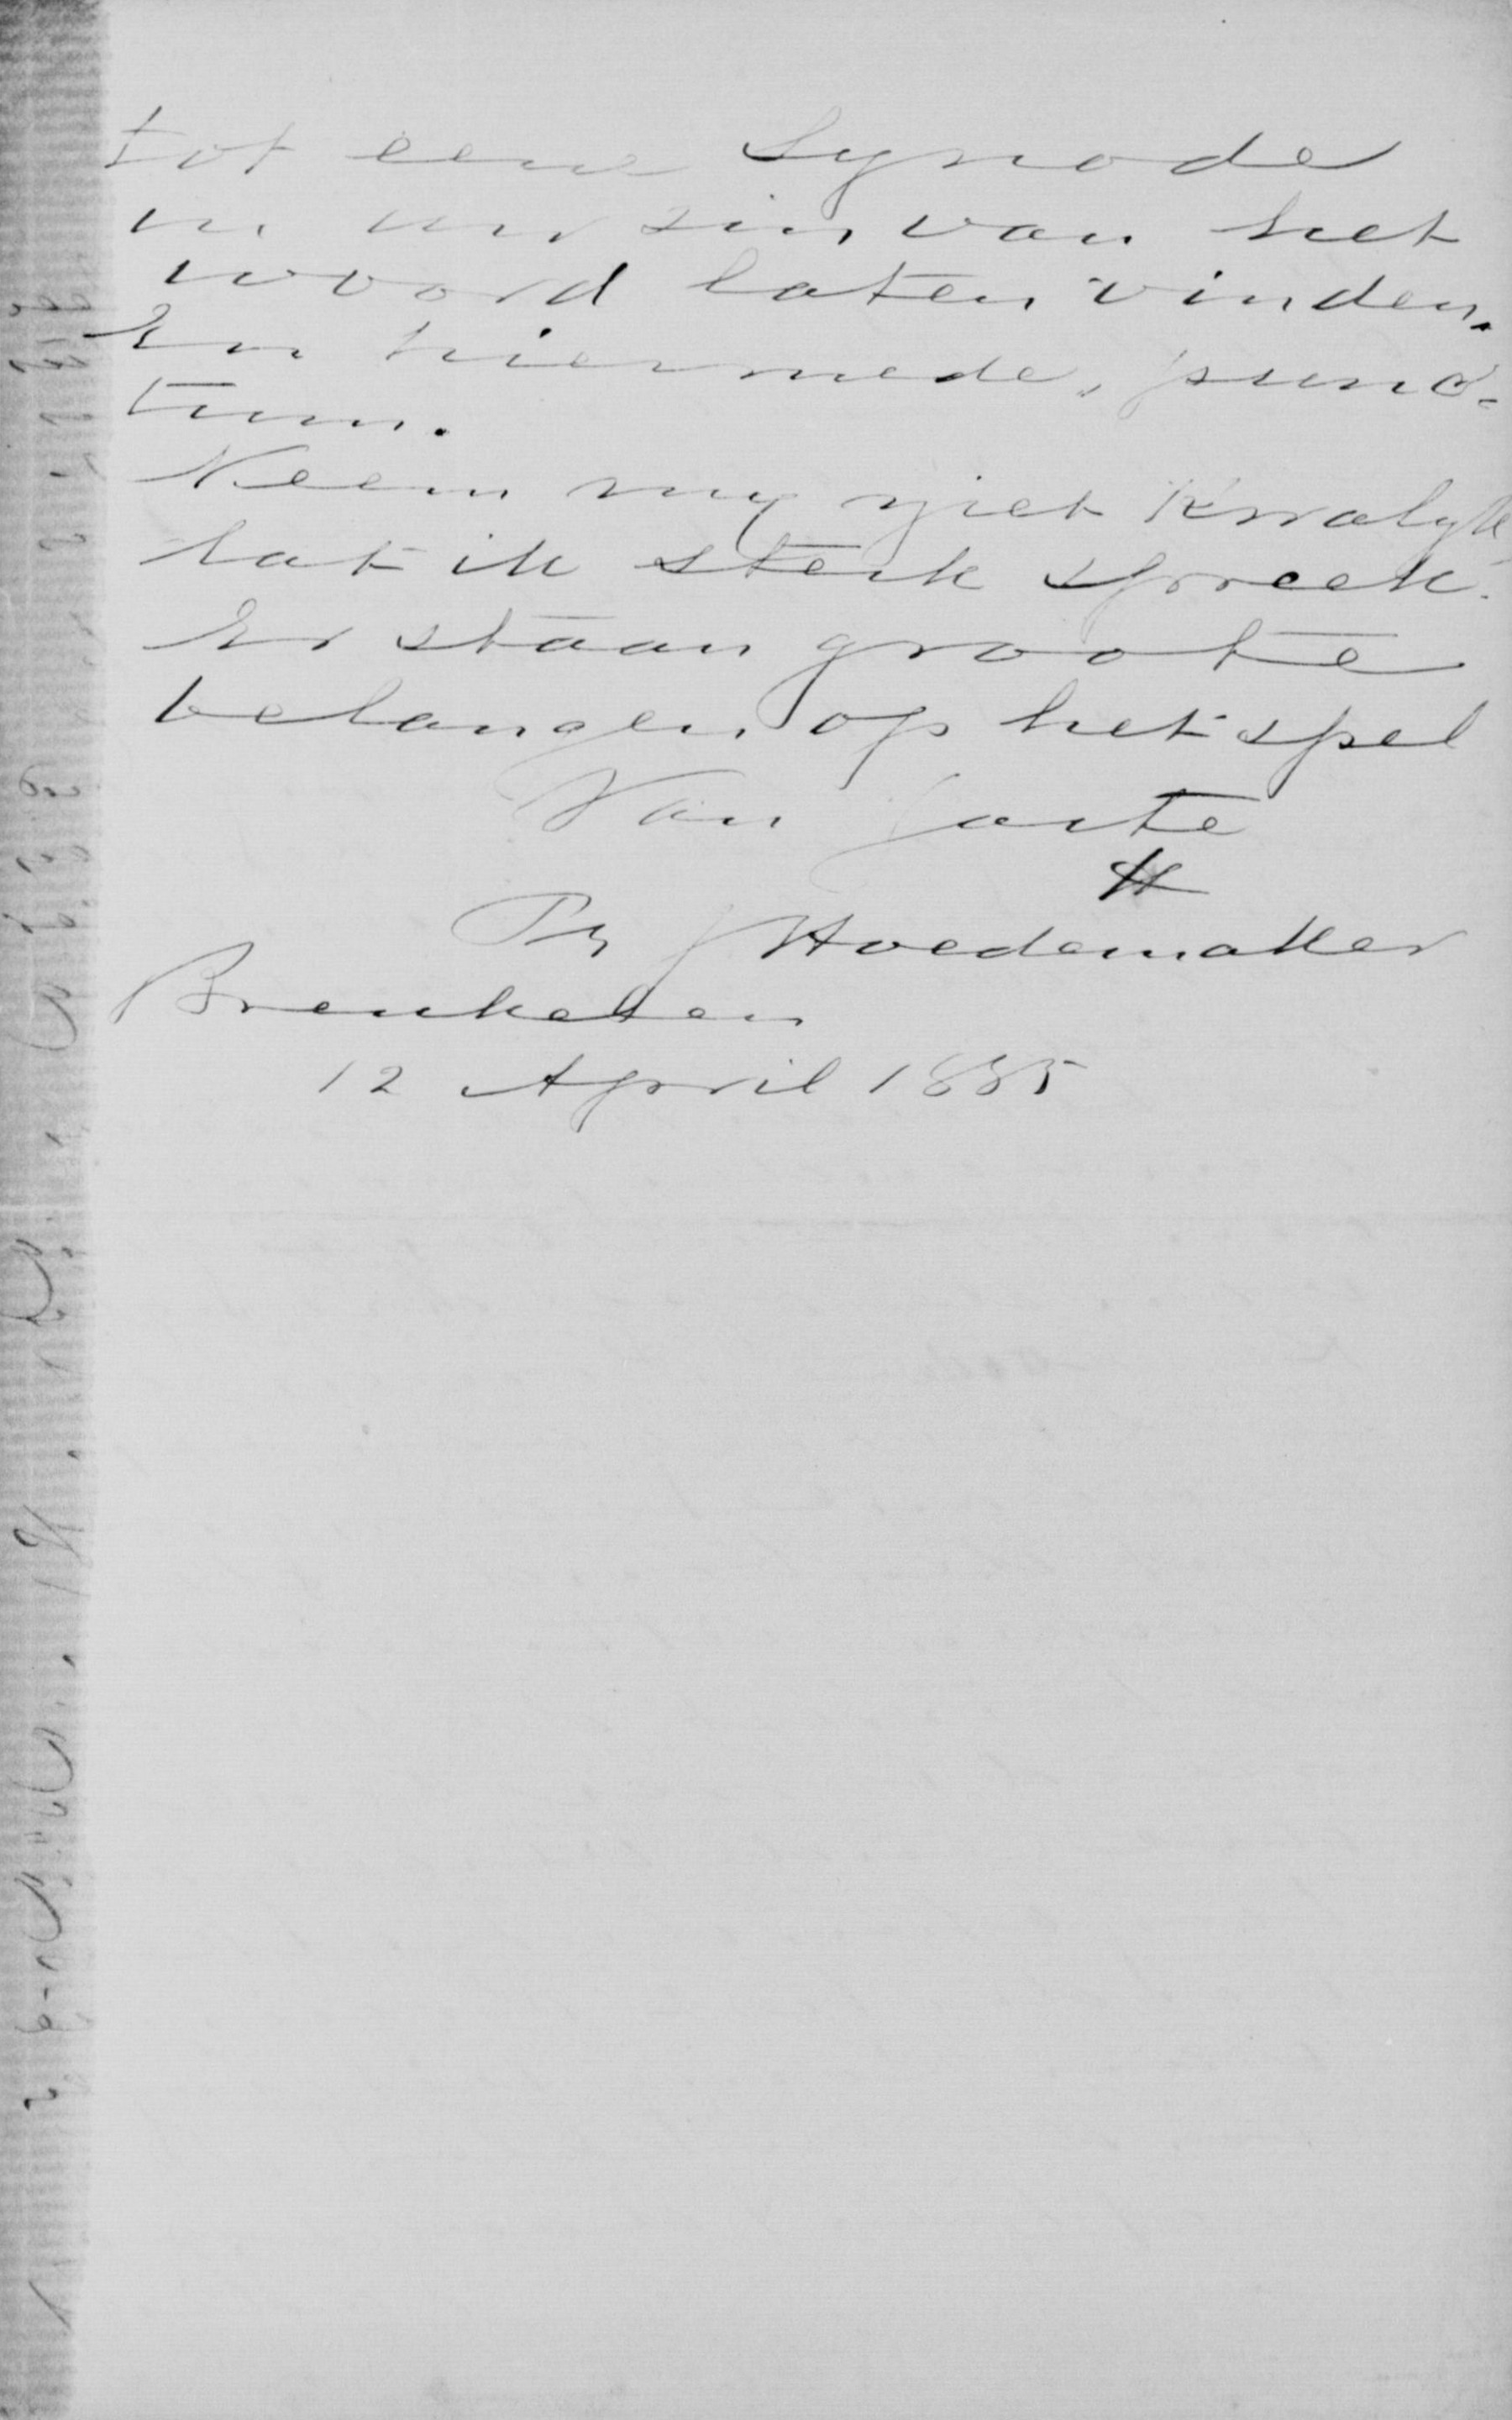 tot eene Synode
in uw zin van het
woord laten vinden.
En hiermede, punc-
tum.
Neem my niet kwalyk
dat ik sterk spreek.
Er staan groote
belangen op het spel
Van harte
tt
Ph J Hoedemaker
Breukelen
12 April 1885